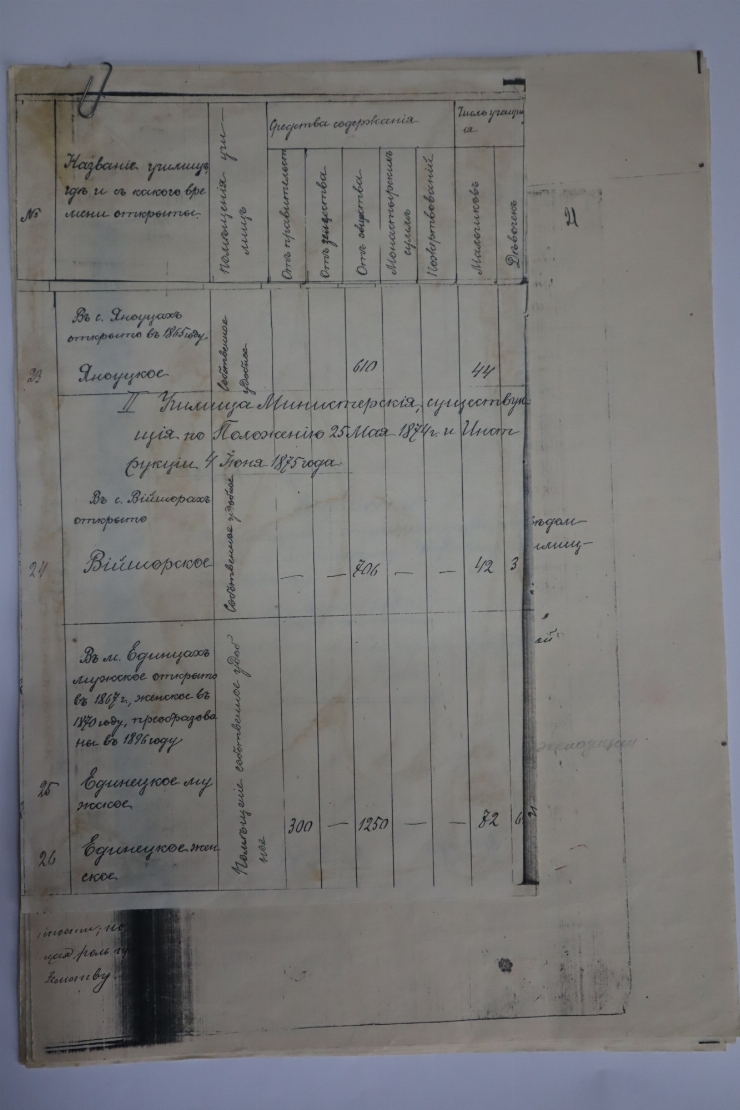 №
Названіе училищъ
гдѣ и съ какого вре
мени открыты.
Помѣщенія учи-
лищъ
Средства содержанія
Отъ правительст
Отъ земства
Отъ общества
Монастырскихъ
суммъ
Пожертвованій
Число учащих
ся
Мальчиковъ
Дѣвочек
Въ с. Яноуцахъ
открыто въ 1865 году.
23
Яноуцкое
Собственное
удобное
610
44
II Училища Министерскія, существую
щія по Положенію 25 Мая 1874 г. и Инст
рукціи 4 Іюня 1875 года
Въ с. Війшорахъ
открыто
24
Війшорское
Собственное удобное
— — 706 — — 42 3
Въ м. Единцахъ
мужское открыто
въ 1867 г., женское въ
1870 году, преобразова
ны въ 1896 году
25
Единецкое му
жское
26
Единецкое жен
ское
Помѣщеніе собственное удоб
ное
300 — 1250 — — 82 6
21
ѣдом-
илищ-
ей
ности; но
щая роль